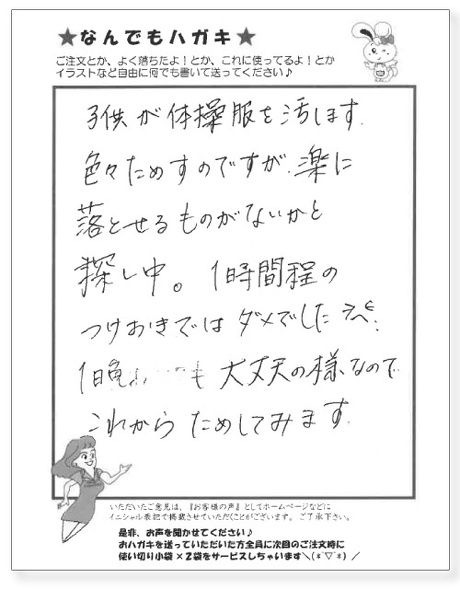 ★なんでもハガキ★
ご注文とか、よく落ちたよ！とか、これに使ってるよ！とか
イラストなど自由に何でも書いて送ってください♪
子供が体操服を汚します。
色々ためすのですが、楽に
落とせるものがないかと
探し中。1時間程の
つけおきではダメでした
1日 も 大丈夫の様なので
これからためしてみます。
いただいたご意見は、『お客様の声』としてホームページなどに
イニシャル表記で掲載させていただくことがございます。ご了承下さい。
是非、お声を聞かせてください♪
おハガキを送っていただいた方全員に次回のご注文時に
使い切り小袋×2袋をサービスしちゃいます＼(*´▽`*)／